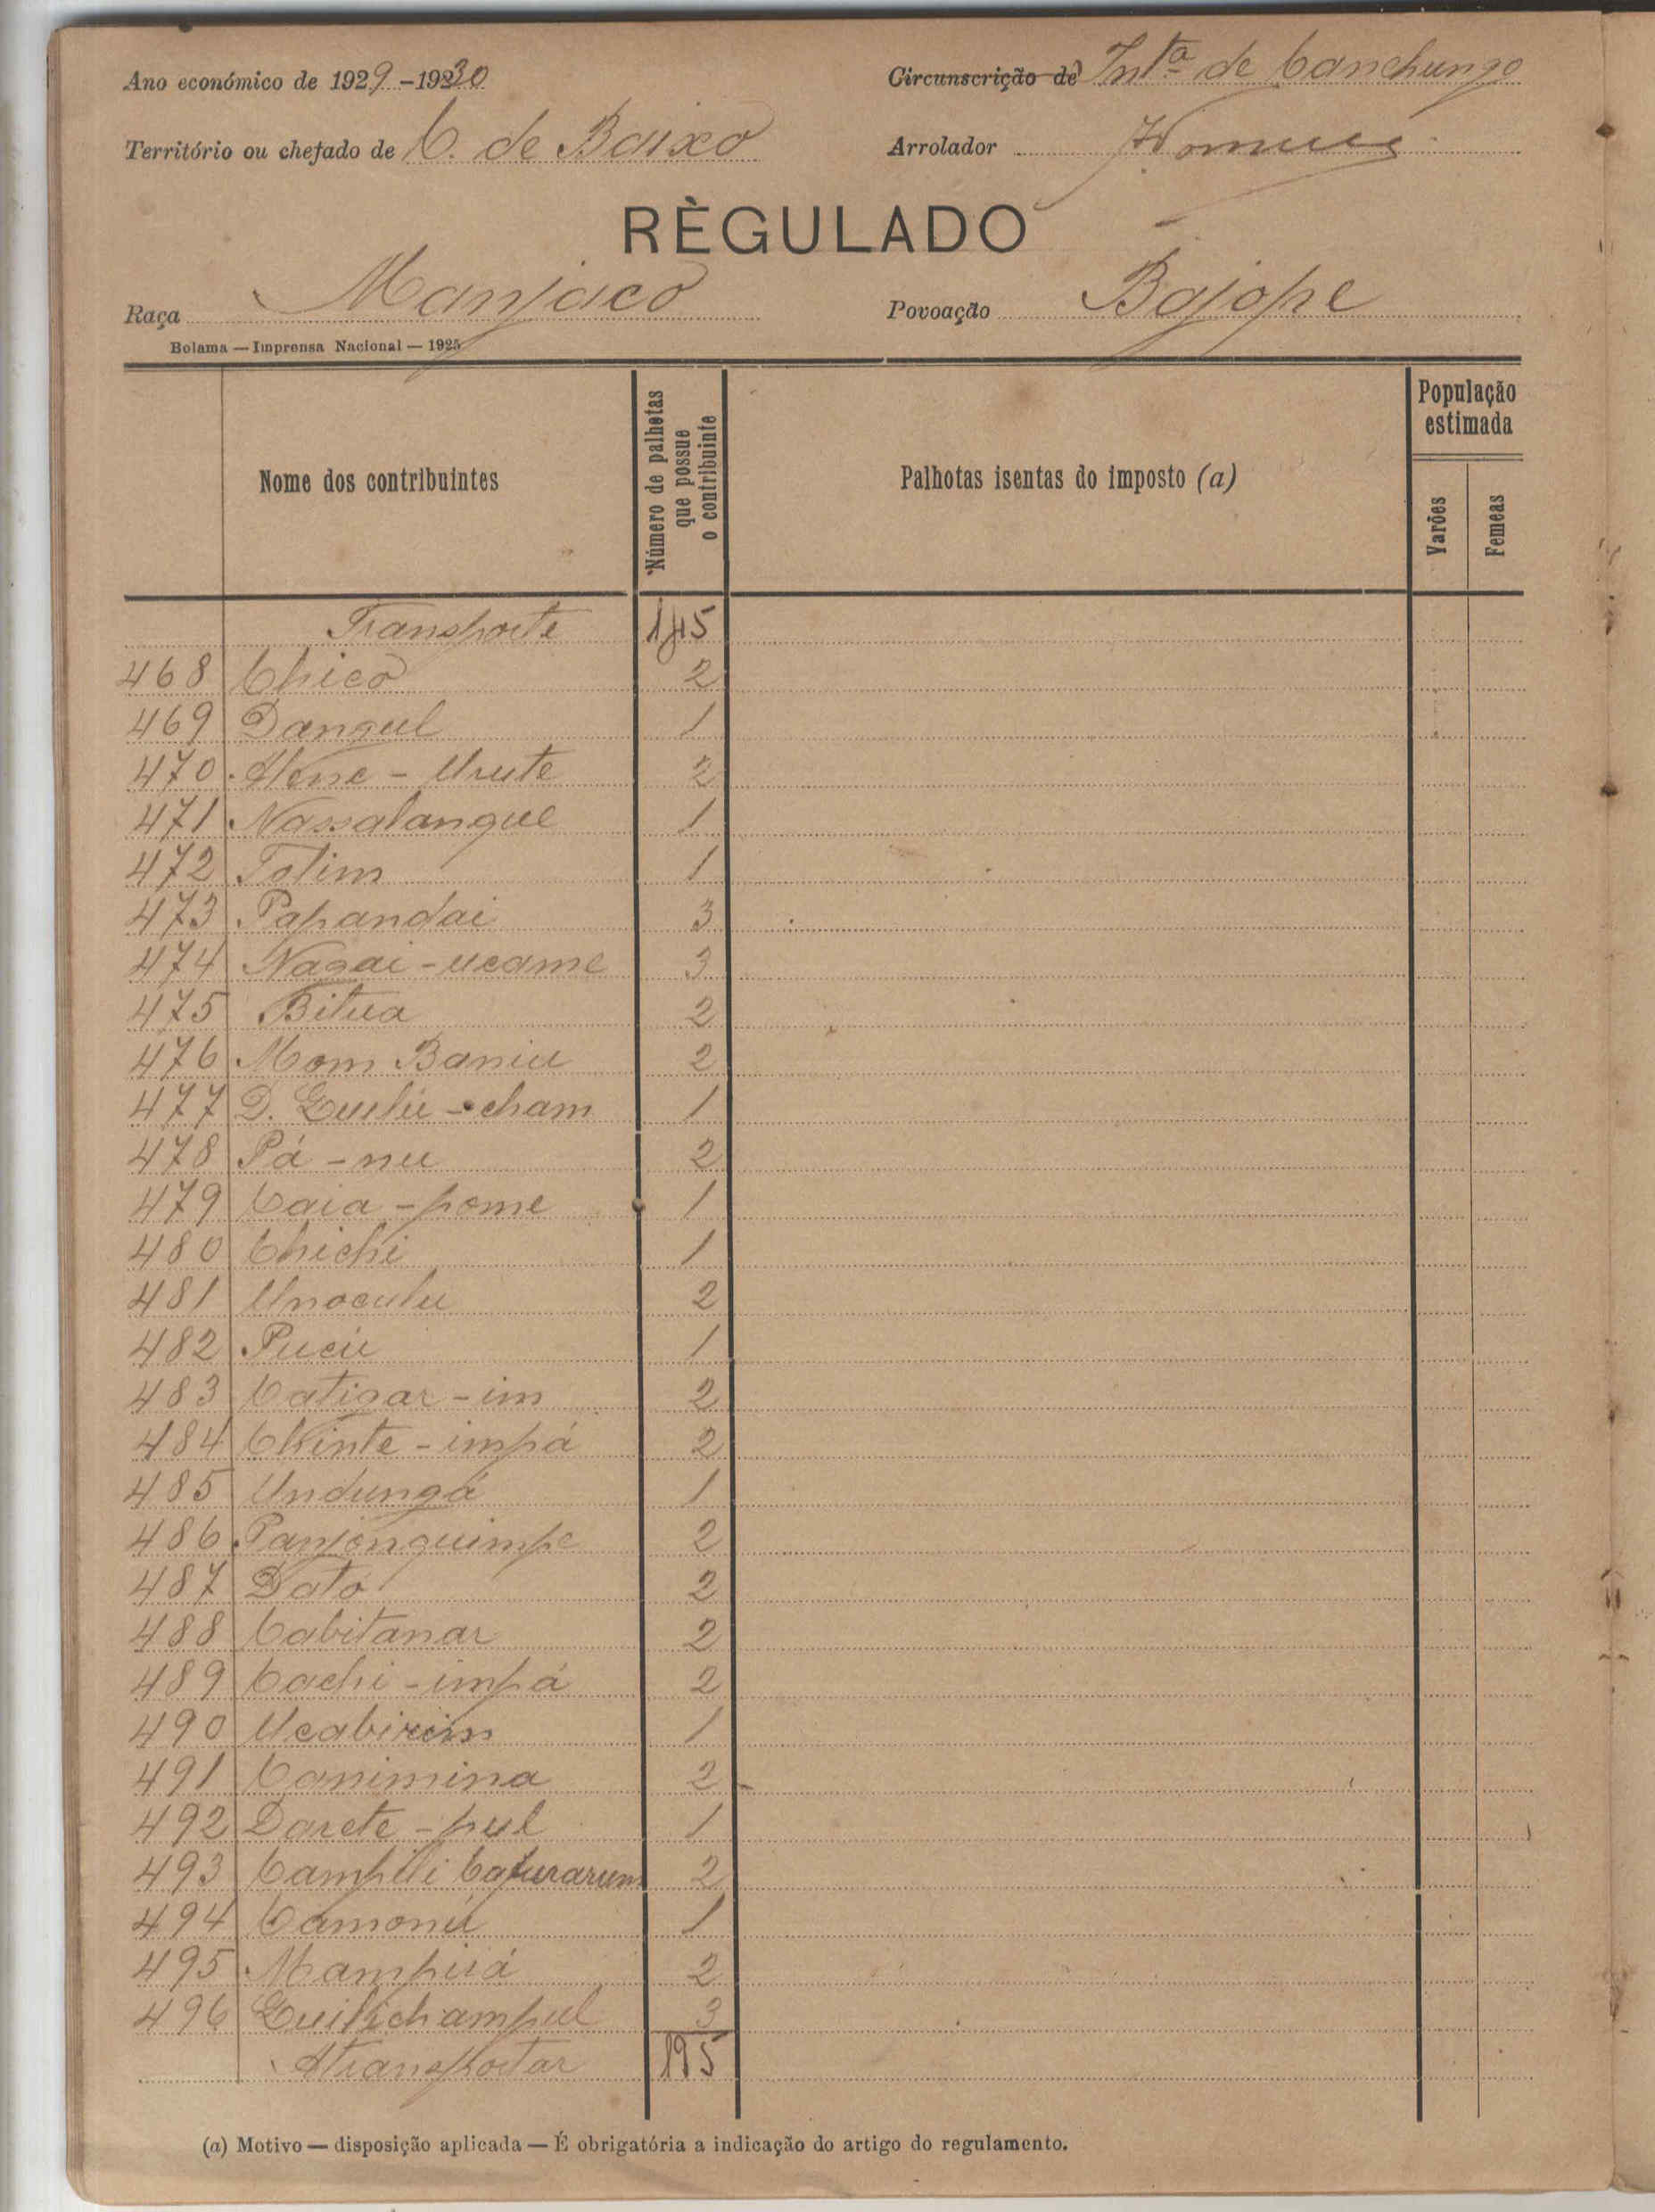 Ano económico de 1929-1930 Circunscrição de Intª de Canchungo
Território ou chefado de C. de Baixo Arrolador
RÈGULADO
Raça Manjaco Povoação Bajope
Bolama — Imprensa Nacional — 1925
Nome dos contribuintes Número de palhotas que possue o contribuinte Palhotas isentas do imposto (a) População estimada Varões Femeas
Transporte 145
468 Chico 2
469 Dangul 1
470 Hene - Urute 2
471 Nassalangue 1
472 Tolim 1
473 Papandai 3
474 Nagai - ucame 3
475 Bitua 2
476 Mom Baniu 2
477 D. Quilú - cham 1
478 Pá - nu 2
479 Caia - pome 1
480 Chichi 1
481 Unoculu 2
482 Pucú 1
483 Catigar - im 2
484 Chinte - impá 2
485 Undungá 1
486 Panjonquimpe 2
487 Dató 2
488 Cabitanar 2
489 Cachi - impá 2
490 Ucabirim 1
491 Canimina 2
492 Darete - pul 1
493 Campili Cafurarum 2
494 Camonú 1
495 Mampuiá 2
496 Quilichampul 3
A transportar 195
(a) Motivo — disposição aplicada — É obrigatória a indicação do artigo do regulamento.